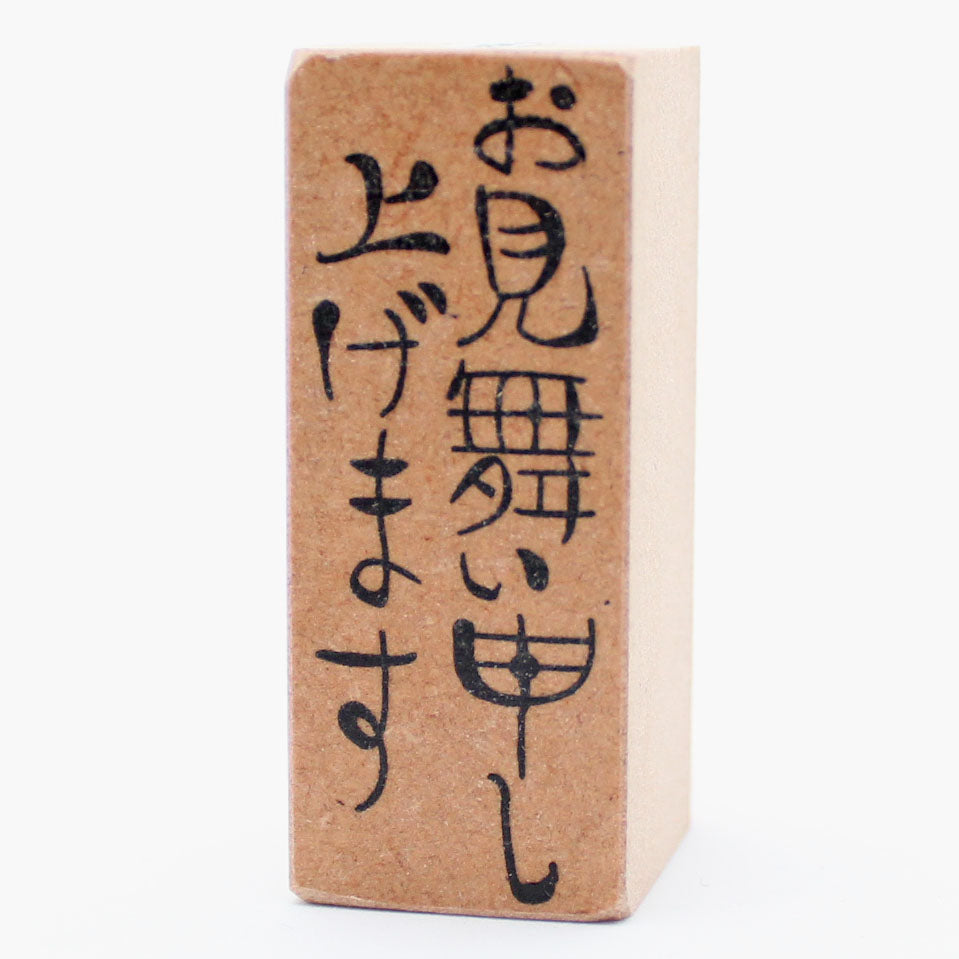 お見舞い申し
上げます